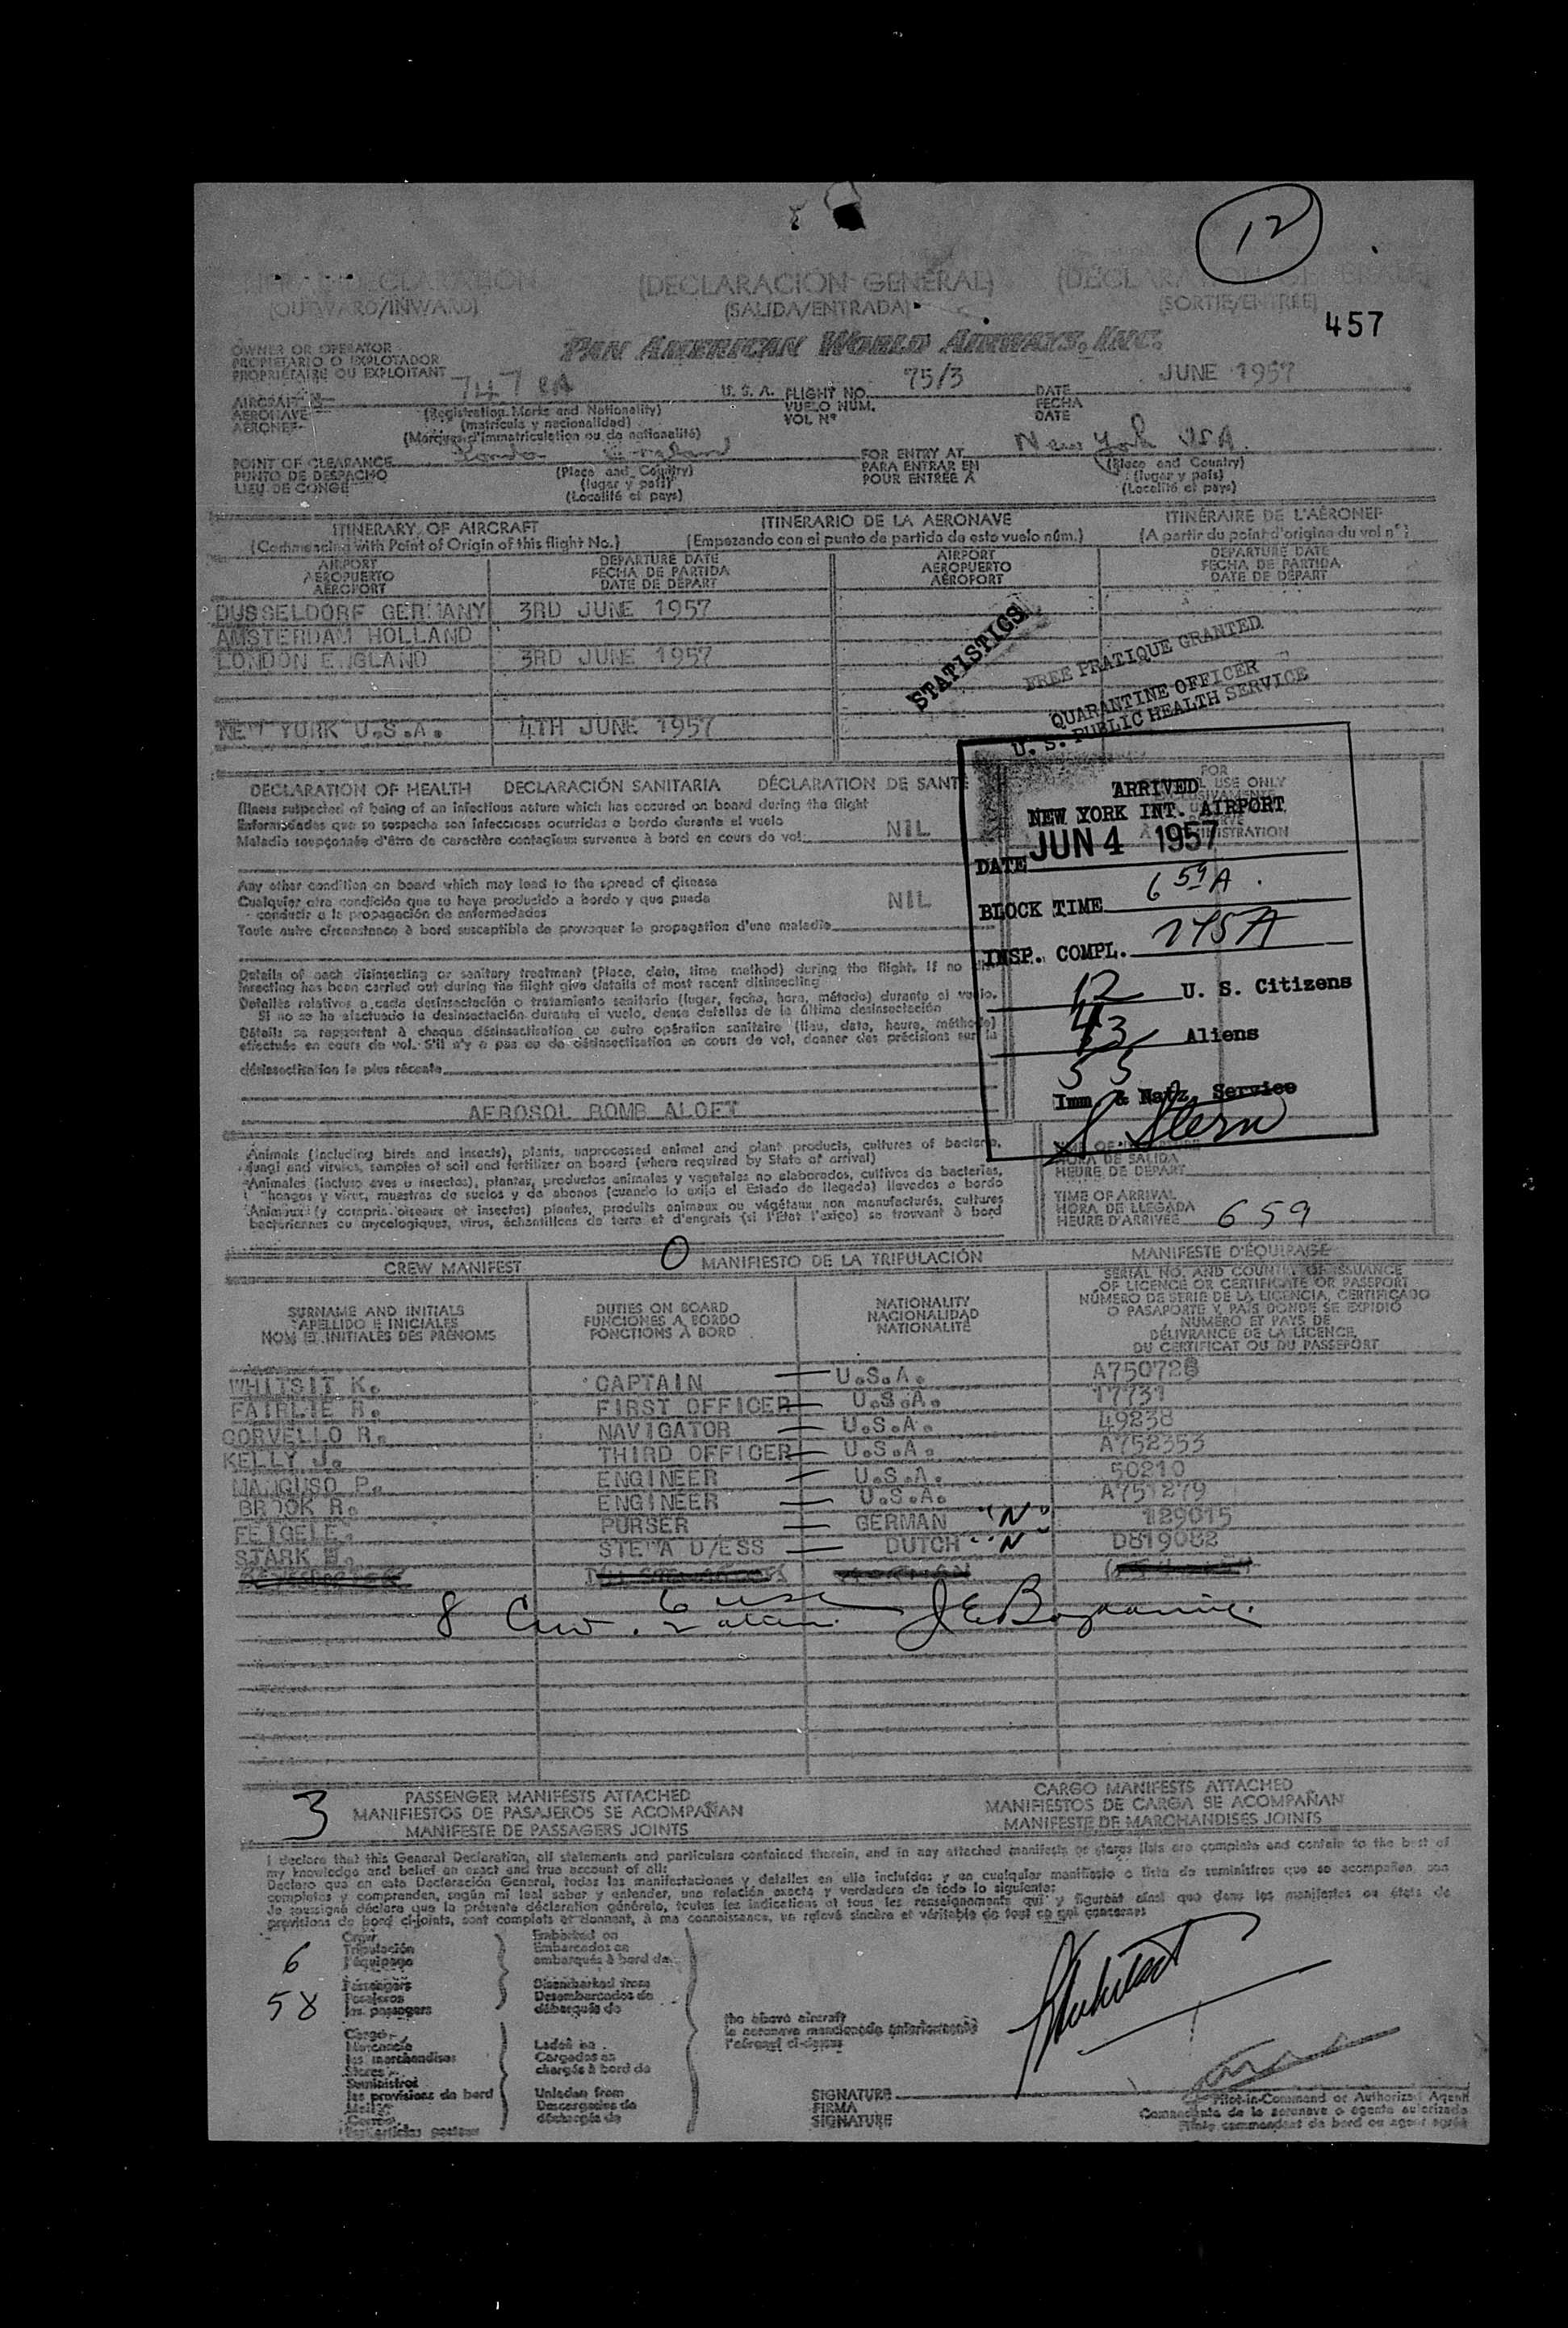 12
DECLARATION (DECLARACIÓN GENERAL)
(OUTWARD/INWARD) (SALIDA/ENTRADA) (SORTIE/ENTRÉE)
457
PAN AMERICAN WORLD AIRWAYS, INC.
OWNER OR OPERATOR
PROPIETARIO O EXPLOTADOR
PROPRIÉTAIRE OU EXPLOITANT
AIRCRAFT 747 U.S.A. FLIGHT NO. 75/3 DATE JUNE 1957
AERONAVE (Registration Marks and Nationality) VUELO NÚM. FECHA
AÉRONEF (matrícula y nacionalidad) VOL Nº DATE
(Marques d'immatriculation ou de nationalité)
POINT OF CLEARANCE London England FOR ENTRY AT New York USA
PUNTO DE DESPACHO (Place and Country) PARA ENTRAR EN (Place and Country)
LIEU DE CONGÉ (lugar y país) POUR ENTRÉE A (lugar y país)
(Localité et pays) (Localité et pays)
ITINERARY OF AIRCRAFT ITINERARIO DE LA AERONAVE ITINÉRAIRE DE L'AÉRONEF
(Commencing with Point of Origin of this flight No.) (Empezando con el punto de partida de este vuelo núm.) (A partir du point d'origine du vol nº)
AIRPORT DEPARTURE DATE AIRPORT DEPARTURE DATE
AEROPUERTO FECHA DE PARTIDA AEROPUERTO FECHA DE PARTIDA
AÉROPORT DATE DE DÉPART AÉROPORT DATE DE DÉPART
DUSSELDORF GERMANY 3RD JUNE 1957
AMSTERDAM HOLLAND
LONDON ENGLAND 3RD JUNE 1957
NEW YORK U.S.A. 4TH JUNE 1957
STATISTICS
FREE PRATIQUE GRANTED
QUARANTINE OFFICER
U. S. PUBLIC HEALTH SERVICE
DECLARATION OF HEALTH DECLARACIÓN SANITARIA DÉCLARATION DE SANTÉ
Illness suspected of being of an infectious nature which has occured on board during the flight
Enfermedades que se sospecha son infecciosas ocurridas a bordo durante el vuelo
Maladie soupçonnée d'être de caractère contagieux survenue à bord en cours de vol NIL
Any other condition on board which may lead to the spread of disease
Cualquier otra condición que se haya producido a bordo y que pueda
conducir a la propagación de enfermedades
Toute autre circonstance à bord susceptible de provoquer la propagation d'une maladie NIL
Details of each disinsecting or sanitary treatment (Place, date, time method) during the flight. If no
insecting has been carried out during the flight give details of most recent disinsecting
Detalles relativos a cada desinsectación o tratamiento sanitario (lugar, fecha, hora, método) durante el vuelo.
Si no se ha efectuado la desinsectación durante el vuelo, dense detalles de la última desinsectación
Détails se rapportant à chaque désinsectisation ou autre opération sanitaire (lieu, date, heure, méthode)
effectués en cours du vol. S'il n'y a pas eu de désinsectisation en cours de vol, donner des précisions sur la
désinsectisation la plus récente
AEROSOL BOMB ALOFT
ARRIVED
NEW YORK INT. AIRPORT
DATE JUN 4 1957
BLOCK TIME 6 59 A.
INSP. COMPL. 745A
12 U. S. Citizens
43 Aliens
55
Imm & Natz. Service
S Stern
Animals (including birds and insects), plants, unprocessed animal and plant products, cultures of bacteria,
fungi and viruses, samples of soil and fertilizer on board (where required by State of arrival)
Animales (incluso aves o insectos), plantas, productos animales y vegetales no elaborados, cultivos de bacterias,
hongos y virus, muestras de suelos y de abonos (cuando lo exija el Estado de llegada) llevados a bordo
Animaux (y compris oiseaux et insectes) plantes, produits animaux ou végétaux non manufacturés, cultures
bactériennes ou mycologiques, virus, échantillons de terre et d'engrais (si l'Etat l'exige) se trouvant à bord
HORA DE SALIDA
HEURE DE DÉPART
TIME OF ARRIVAL
HORA DE LLEGADA
HEURE D'ARRIVÉE 659
CREW MANIFEST O MANIFIESTO DE LA TRIPULACIÓN MANIFESTE D'ÉQUIPAGE
SURNAME AND INITIALS
APELLIDO E INICIALES
NOM ET INITIALES DES PRÉNOMS
DUTIES ON BOARD
FUNCIONES A BORDO
FONCTIONS À BORD
NATIONALITY
NACIONALIDAD
NATIONALITÉ
SERIAL NO. AND COUNTRY OF ISSUANCE
OF LICENCE OR CERTIFICATE OR PASSPORT
NÚMERO DE SERIE DE LA LICENCIA, CERTIFICADO
O PASAPORTE Y PAÍS DONDE SE EXPIDIÓ
NUMÉRO ET PAYS DE
DÉLIVRANCE DE LA LICENCE,
DU CERTIFICAT OU DU PASSEPORT
WHITSIT K. CAPTAIN U.S.A. A750728
FAIRLIE R. FIRST OFFICER U.S.A. 17731
CORVELLO R. NAVIGATOR U.S.A. 49238
KELLY J. THIRD OFFICER U.S.A. A752353
MANGUSO P. ENGINEER U.S.A. 50210
BROOK R. ENGINEER U.S.A. A751279
FEIGELE. PURSER GERMAN "N" 129015
STARK H. STEWARD/ESS DUTCH "N" D819082
8 Crew. 6 usc
2 aliens
3
PASSENGER MANIFESTS ATTACHED CARGO MANIFESTS ATTACHED
MANIFIESTOS DE PASAJEROS SE ACOMPAÑAN MANIFIESTOS DE CARGA SE ACOMPAÑAN
MANIFESTE DE PASSAGERS JOINTS MANIFESTE DE MARCHANDISES JOINTS
I declare that this General Declaration, all statements and particulars contained therein, and in any attached manifests or stores lists are complete and contain to the best of
my knowledge and belief an exact and true account of all:
Declaro que en esta Declaración General, todas las manifestaciones y detalles en ella incluídos y en cualquier manifiesto o lista de suministros que se acompañen, son
completos y comprenden, según mi leal saber y entender, una relación exacta y verdadera de todo lo siguiente:
Je soussigné déclare que la présente déclaration générale, toutes les indications et tous les renseignements qui y figurent ainsi que dans les manifestes ou états de
provisions de bord ci-joints, sont complets et donnent, à ma connaissance, un relevé sincère et véritable de tout ce qui concerne:
6
Crew
Tripulación
l'équipage
58
Passengers
Pasajeros
les passagers
Embarked on
Embarcados en
embarqués à bord de
Disembarked from
Desembarcados de
débarqués de
Cargo
Mercancía
les marchandises
Stores
Suministros
les provisions de bord
Laden on
Cargados en
chargés à bord de
Unladen from
Descargados de
déchargés de
the above aircraft
la aeronave mencionada anteriormente
l'aéronef ci-dessus
SIGNATURE
FIRMA
SIGNATURE
Pilot-in-Command or Authorized Agent
Comandante de la aeronave o agente autorizado
Pilote commandant de bord ou agent agréé